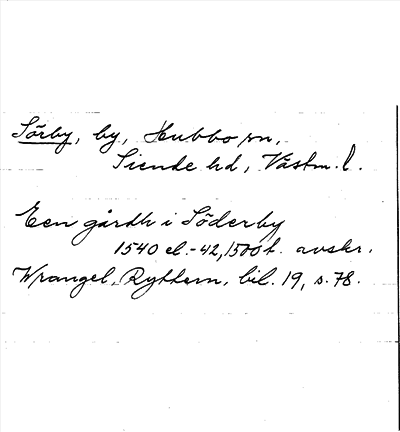 Sörby, by, Hubbo sn,
Siende hd, Västm. l.
Een gårdh i Söderby
1540 el.-42, 1500 t. avskr.
Wrangel, Ryttern, bil. 19, s. 78.